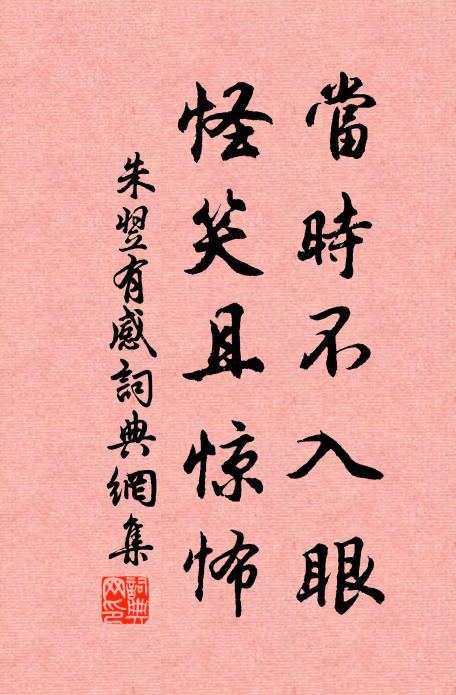 當時不入眼
怪笑且惊怖
朱翌有感詞典網集
詞典网印